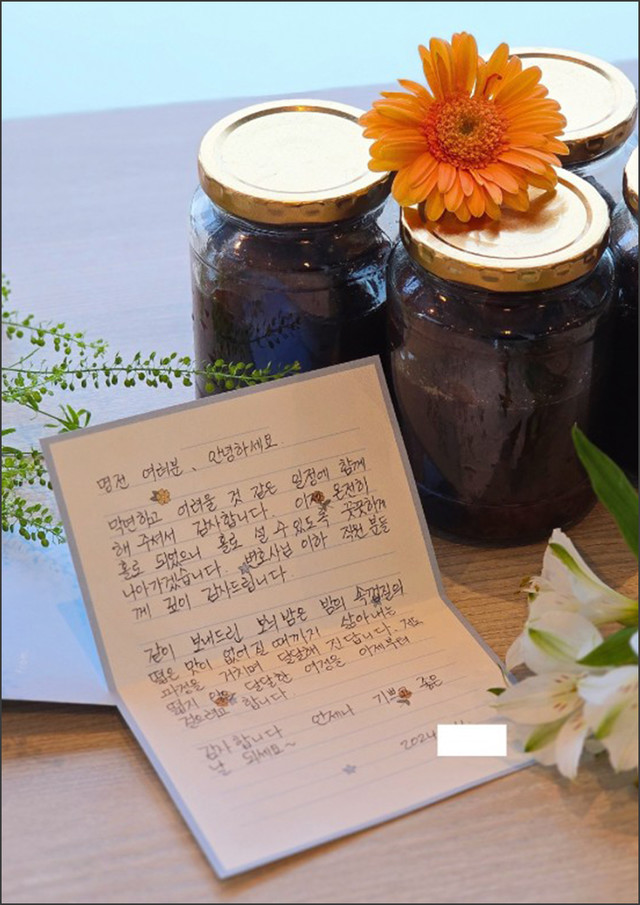 명전 여러분, 안녕하세요.
막연하고 어려울 것 같은 일정에 함께
해 주셔서 감사합니다. 이제 온전히
홀로 되었으니 홀로 설 수 있도록 꿋꿋하게
나아가겠습니다. 변호사님 이하 직원 분들
께 깊이 감사드립니다
같이 보내드린 보늬밤은 밤의 속껍질의
떫은 맛이 없어질 때까지 삶아내는
과정을 거치며 달달해 진답니다. 저도
떫지 않은 달달한 여정을 이제부터
걸으려고 합니다.
감사합니다 언제나 기쁘고 좋은
날 되세요~ 2024